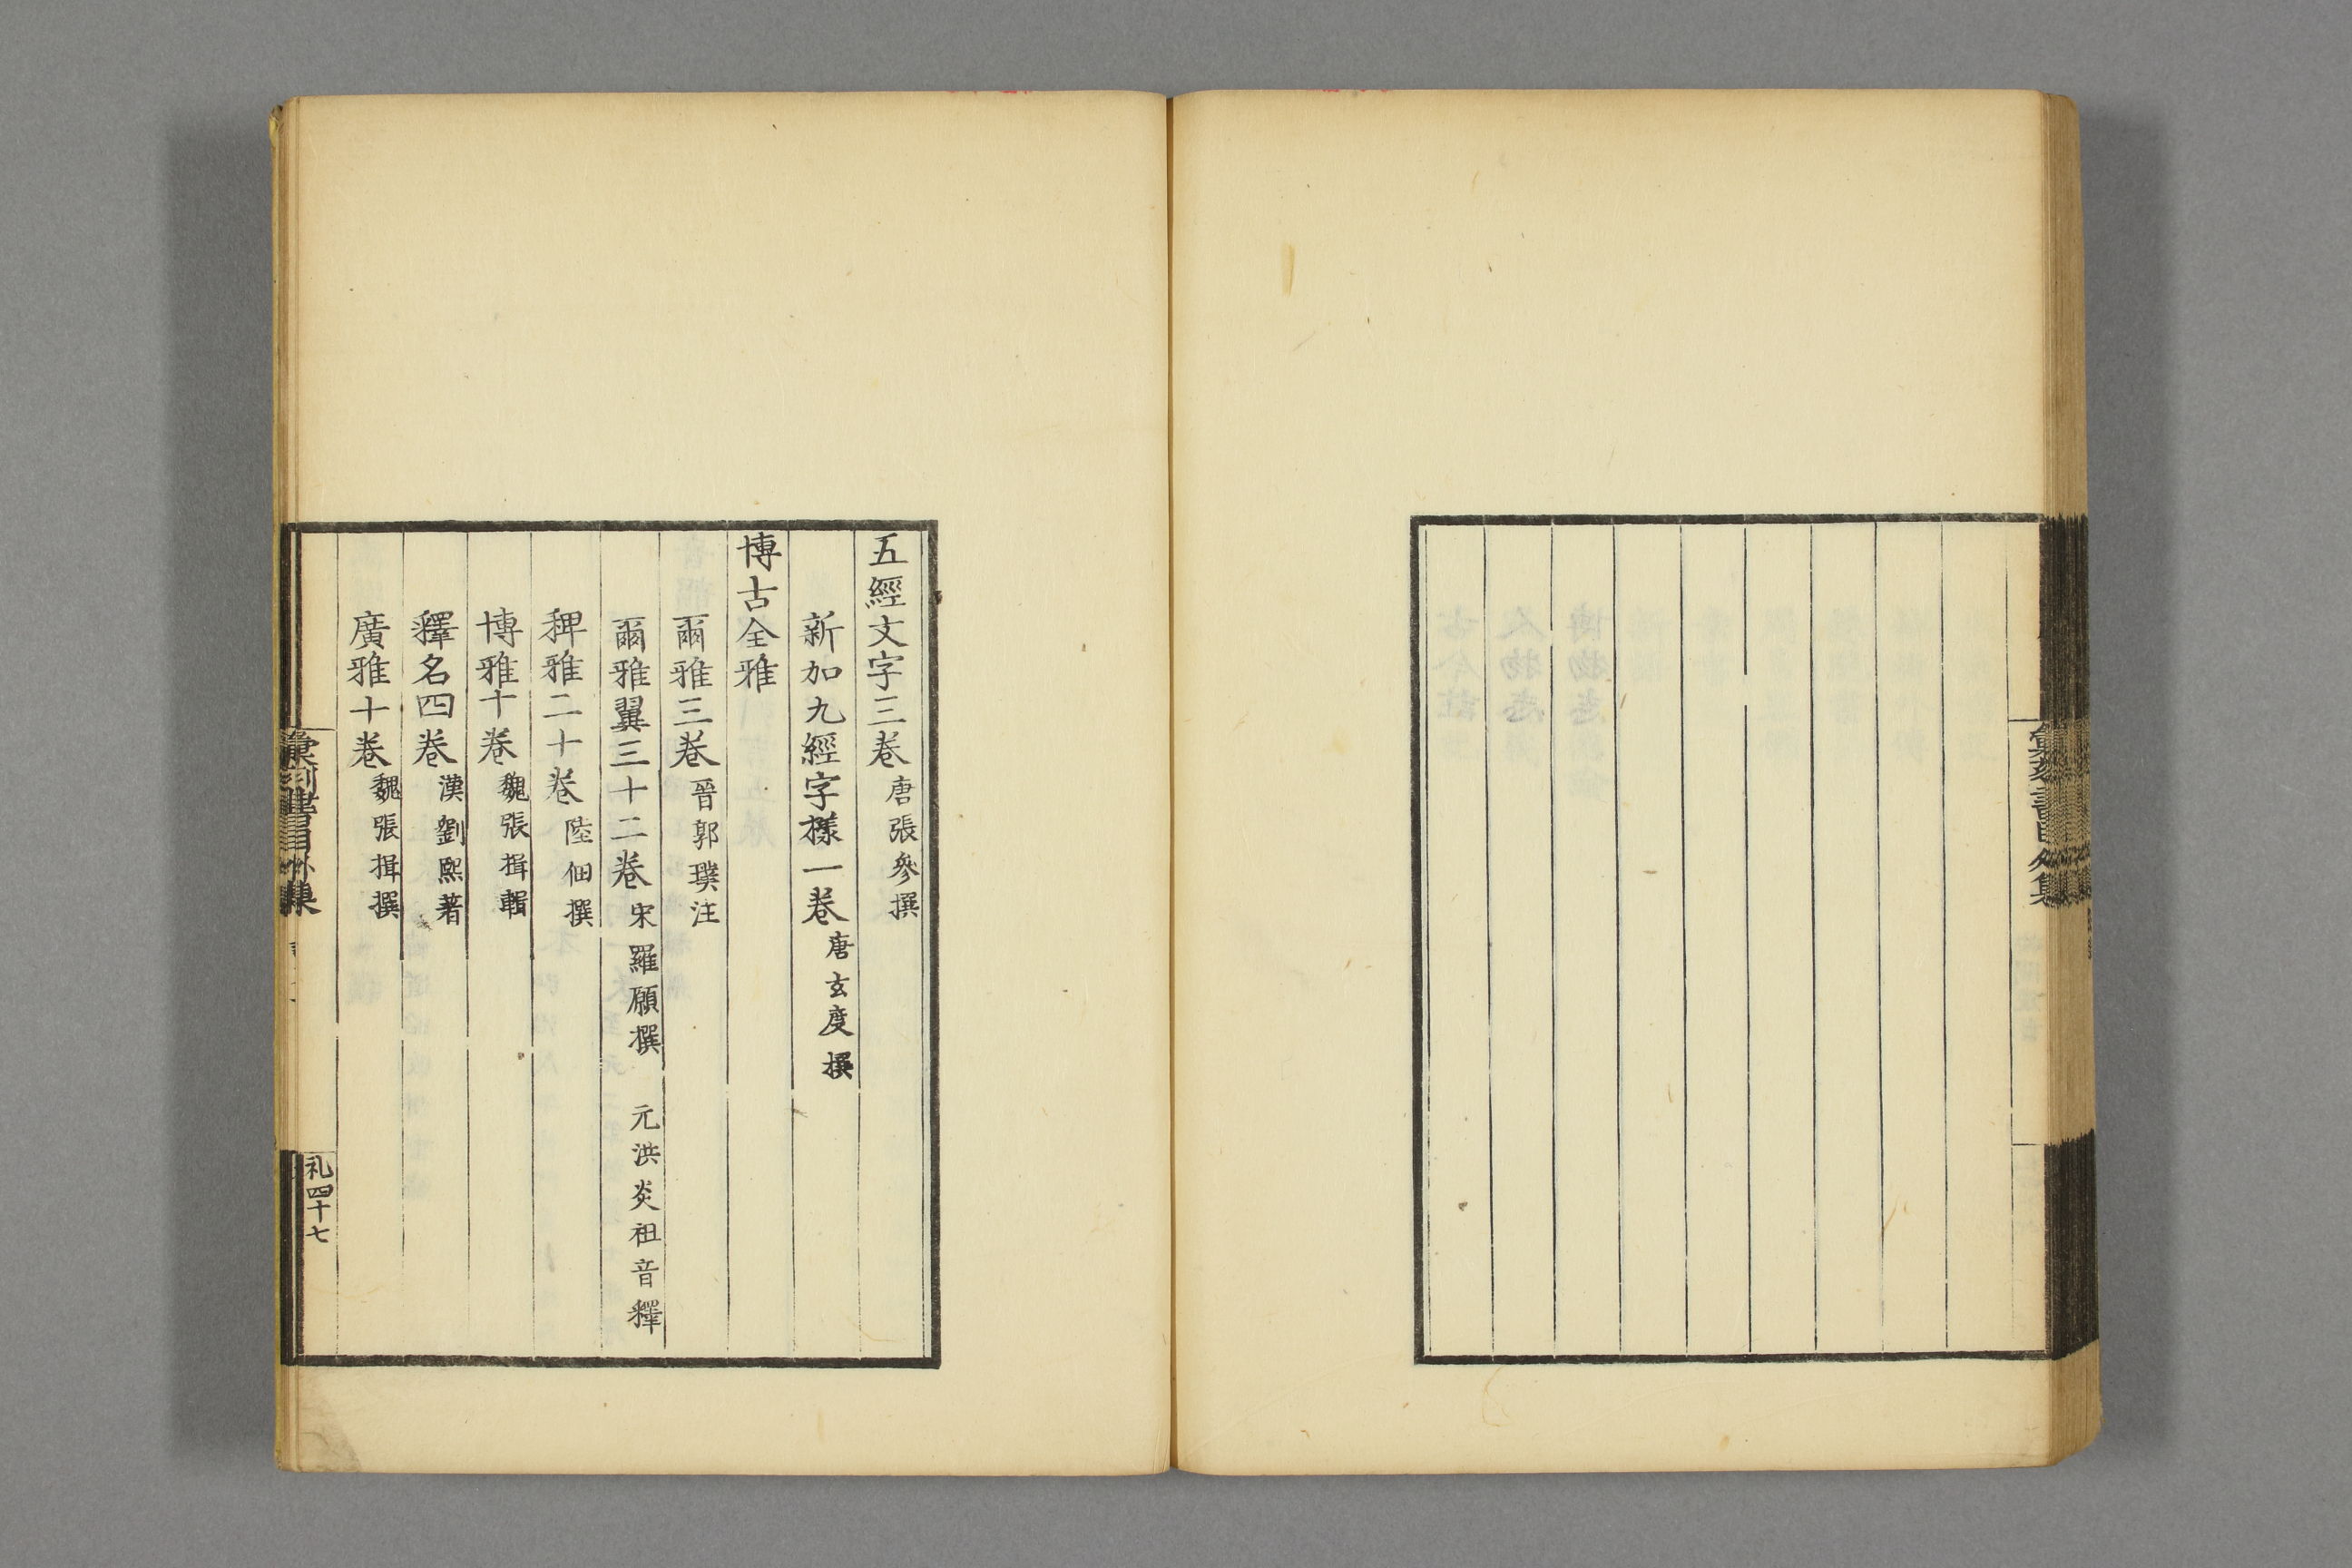 彙刻書目外集
五經文字三卷 唐張參撰
新加九經字樣一卷 唐玄度撰
博古全雅
爾雅三卷 晉郭璞注
爾雅翼三十二卷 宋羅願撰 元洪炎祖音釋
稗雅二十卷 陸佃撰
博雅十卷 魏張揖輯
釋名四卷 漢劉熙著
廣雅十卷 魏張揖撰
彙刻書目外集
礼四十七